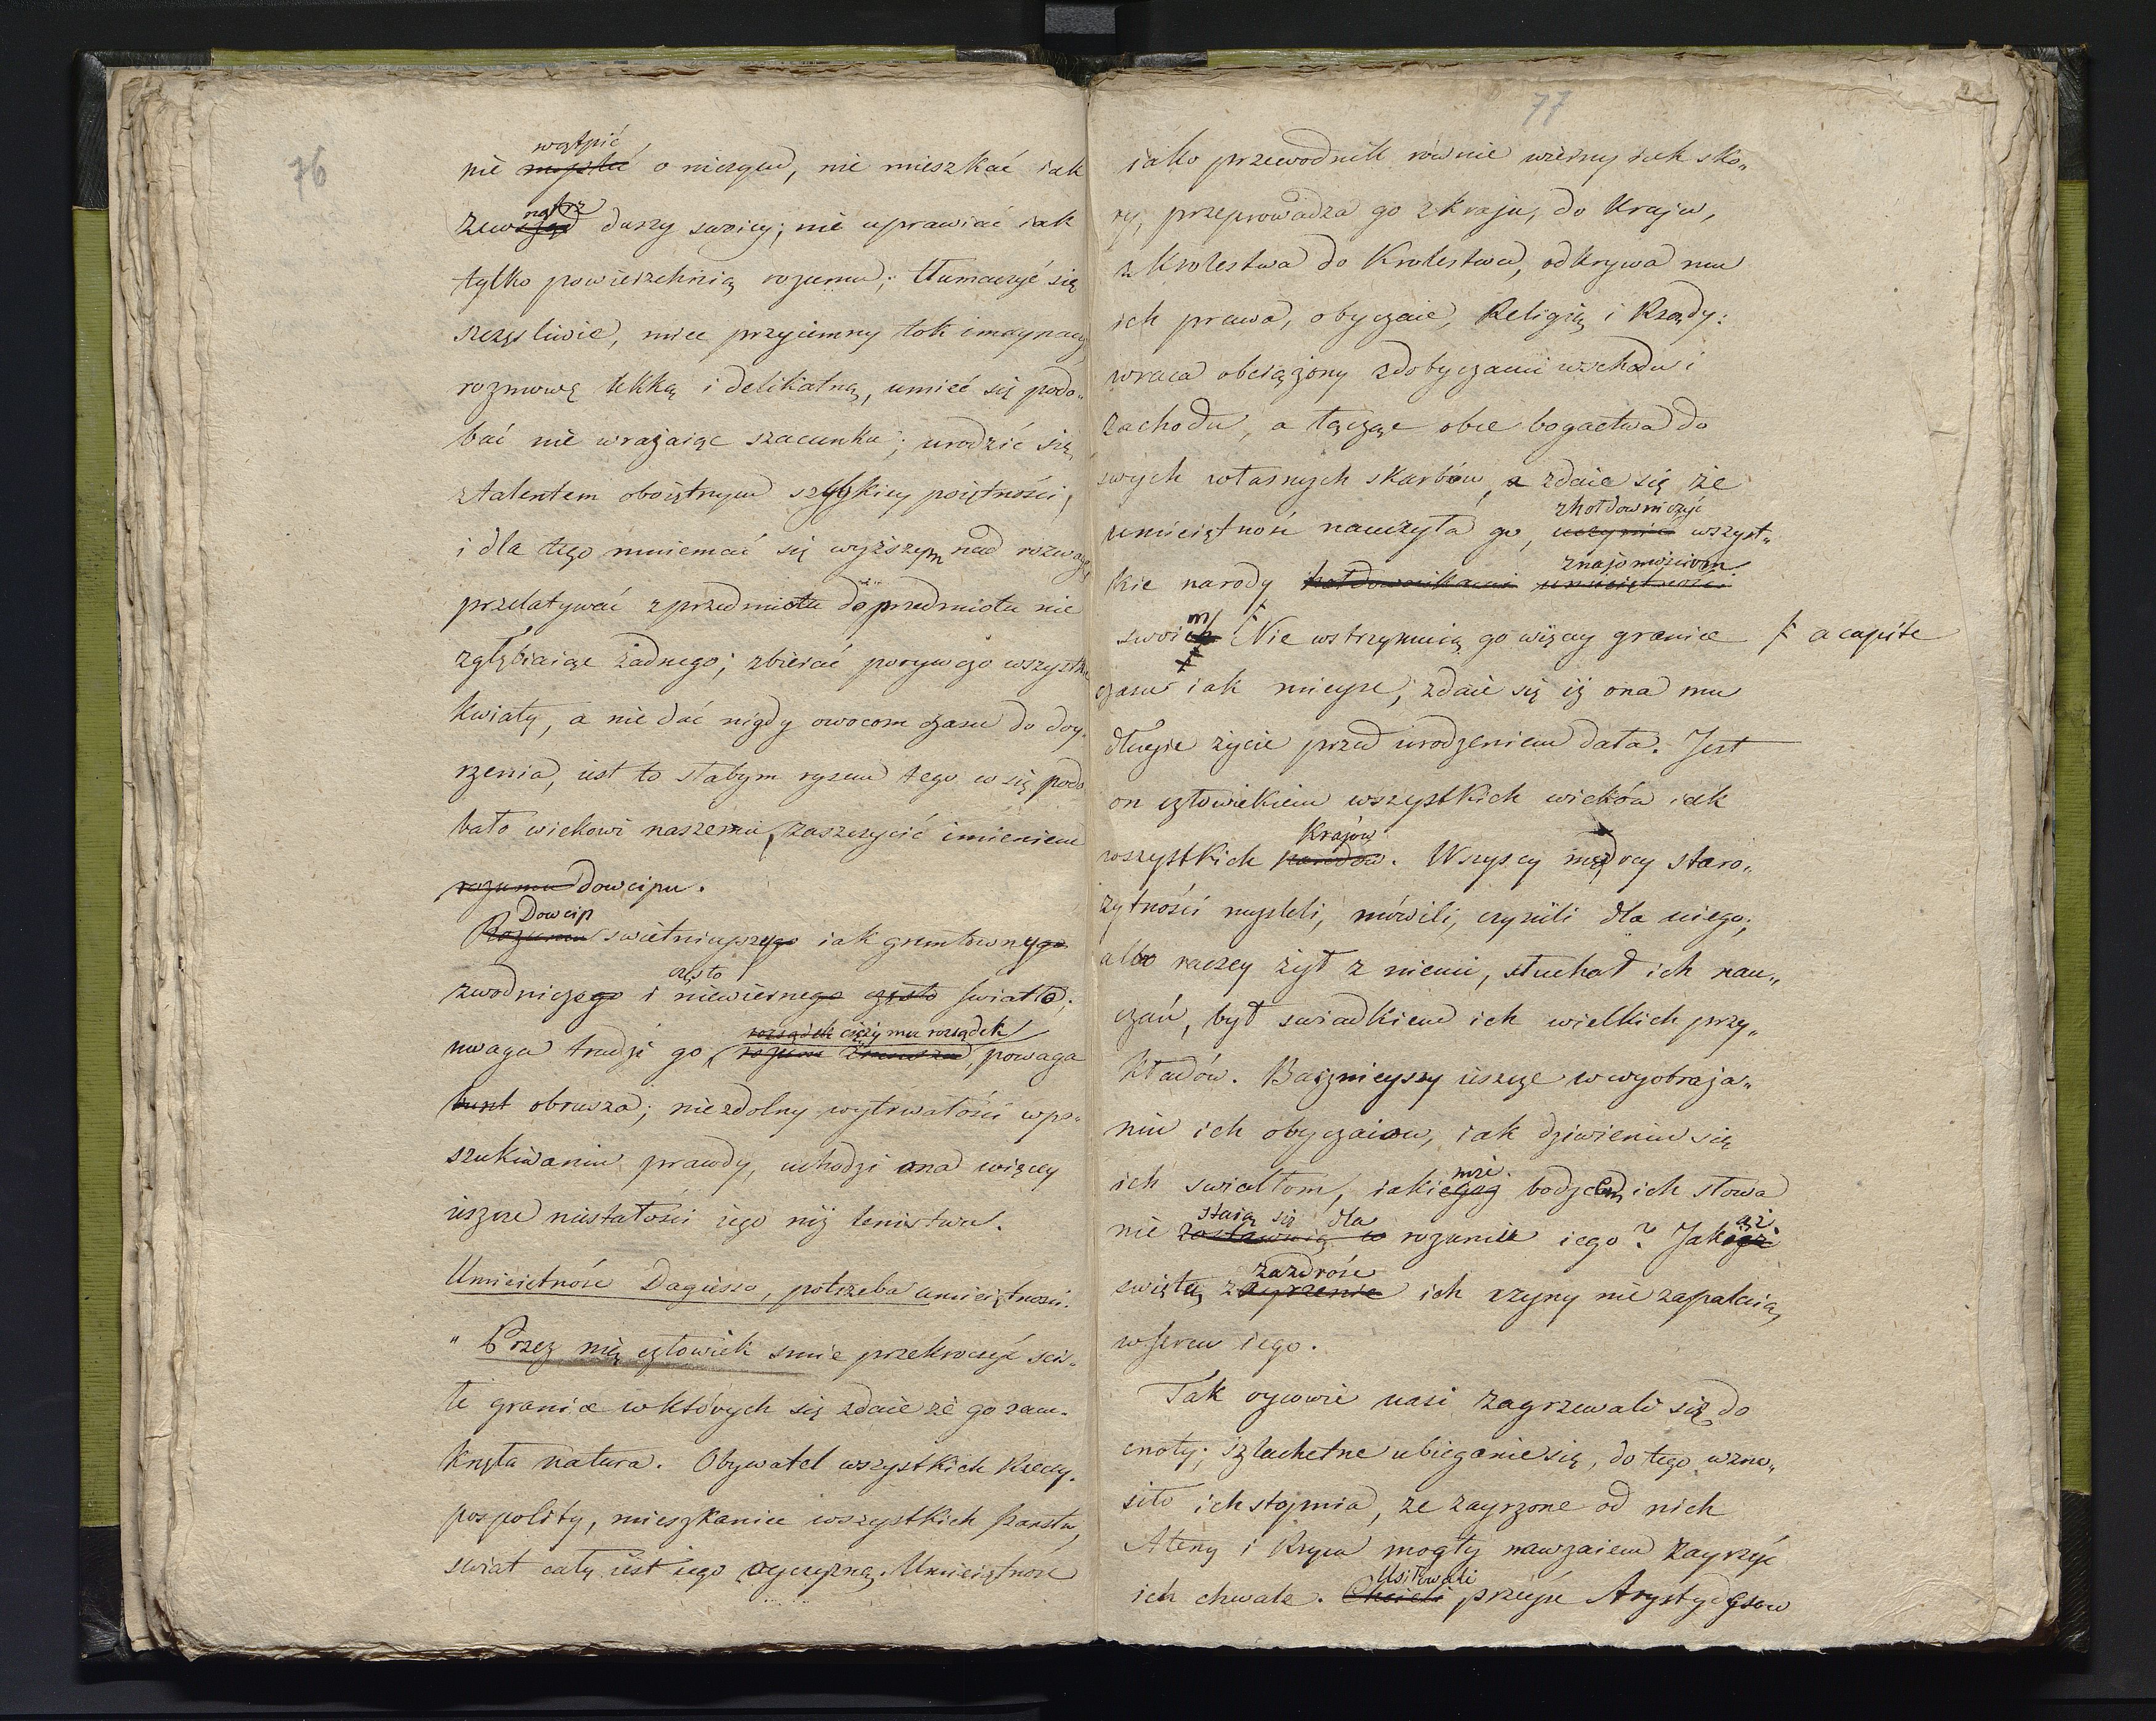 76
wątpić
nie myslić o niczym, nie mieszkać iak
nątrz
zewsząd duszy swoiey; nie uprawiać iak
tylko powierzchnią rozumu; tłumaczyć się
szczęsliwie, miec przyiemny tok imaynacyi
rozmowę lekką i delikatną, umieć się podo„
bać nie wrażaiąc szacunku; urodzić się
z talentem oboiętnym szybkiey poiętności,
i dla tego mniemać się wyższym nad rozwagę
przelatywać z przedmiotu do przedmiotu nie
zgłębiaiąc żadnego; zbierać porywczo wszystkie
kwiaty, a nie dać nigdy owocom czasu do doy„
rzenia, iest to słabym rysem tego co się podo
bało wiekowi naszemu, zaszczycić imieniem
rozumu dowcipu.
Dowcip
Rozumu swietnieyszego iak gruntownego
często
zwodniczego i niewiernego często swiatła;
rozsądek cięży mu rozsądek
uwaga trudzi go, rozum zmusza, powaga
bunt obrusza; niezdolny wytrwałości w po„
szukiwaniu prawdy, uchodzi ona więcey
ieszcze niestałości iego niż lenistwu.
Umieiętność Daguesso, potrzeba umieiętności.
" Przez nię człowiek smie przekroczyć scis„
łe granice w których się zdaie że go zam„
knęła natura. Obywatel wszystkich Rzeczy„
pospolity, mieszkaniec wszystkich Państw,
swiat cały iest iego oyczyzną. Umieiętność
77
iako przewodnik równie wierny iak sko„
ry, przeprowadza go z kraju, do Kraju,
z Krolestwa do Krolestwa, odkrywa mu
ich prawa, obyczaie, Religię i Rządy:
wraca obciążony zdobyczami wschodu i
zachodu, a łącząc obce bogactwa do
swych własnych skarbow, a zdaie się że
zhołdowniczyć
umieiętność nauczyła go, uczynić wszyst„
znajomościom
kie narody hołdownikami umieiętności
m
swoich Nie wstrzymuią go więcey granice ⌿ a capite
czasu iak mieysc; zdaie się iż ona mu
długie życie przed urodzeniem dała. Jest
on człowiekiem wszystkich wieków iak
Krajów
wszystkich narodów. Wszyscy mędrcy staro„
żytności mysleli, mówili, czynili dla niego;
albo raczey żył z niemi, słuchał ich nau„
czań, był swiadkiem ich wielkich przy„
kładów. Bacznieyszy ieszcze w wyobraża„
niu ich obyczaiow, iak dziwieniu się
mże
ich swiatłom, iakiegoż bodźcem ich słowa
staią się dla
nie zostawuią w rozumie iego? Jakiąż
ąż
zazdrość
swiętą zayrzenie ich czyny nie zapalaią
w sercu iego.
Tak oycowie nasi zagrzewali się do
cnoty; szlachetne ubieganie się, do tego wzno„
siło ich stopnia, ze zayrzone od nich
Ateny i Rzym mogły nawzaiem zayrzyć
Usiłowali
ich chwale. Chcieli przeyść Arystydesow